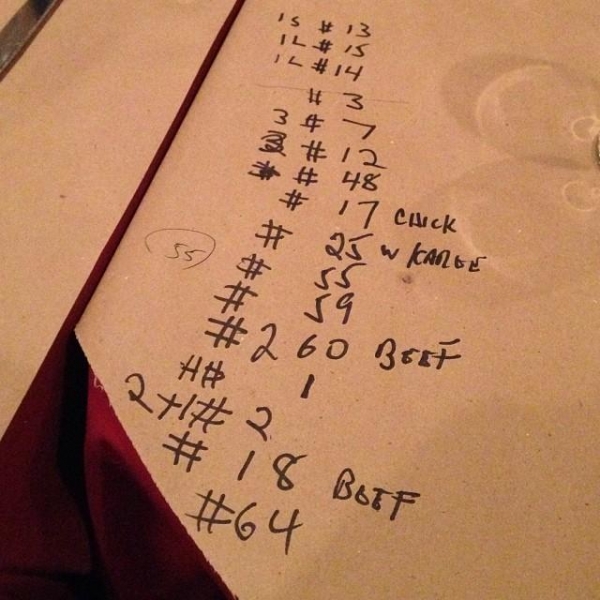 1S # 13
1L # 15
1L # 14
# 3
3 # 7
# 12
# 48
# 17 CHICK
# 25 W/
55
# 55
# 59
# 2 60 BEEF
# 1
2+1# 2
# 18 BEEF
#64